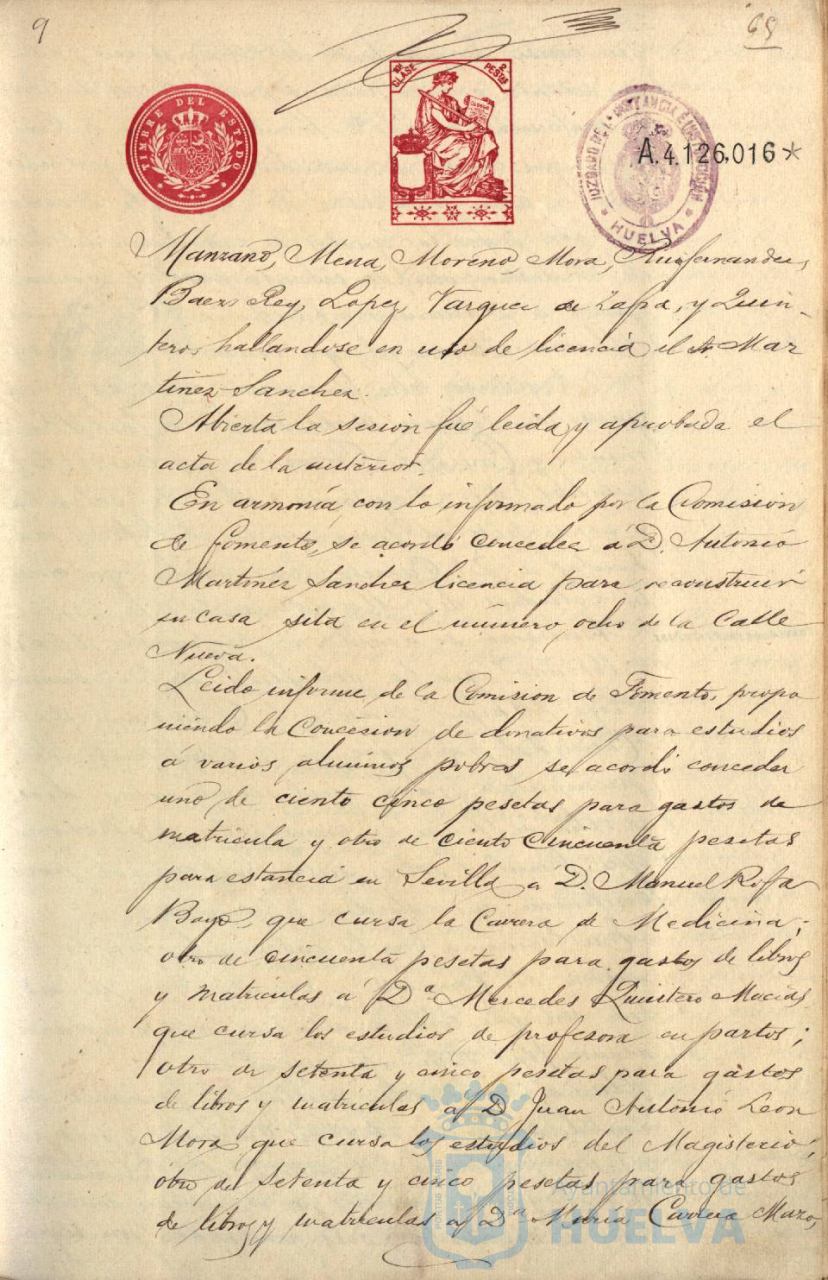 9
65
TIMBRE DEL ESTADO
CLASE
PESTAS
JUZGADO DE 1ª INSTANCIA E INSTRUCCION
HUELVA
A.4.126.016*
Manzano, Mena, Moreno, Mora,
Baez, Rey, Lopez, Vazquez de Zapa, y Quin-
tero, hallandose en uso de licencia el Sr Mar
tinez Sanchez.
Abierta la sesion fué leida y aprobada el
acta de la anterior.
En armonía con lo informado por la Comision
de Fomento, se acordó conceder á D. Antonio
Martinez Sanchez licencia para reconstruir
su casa sita en el número ocho de la Calle
Nueva.
Leido informe de la Comision de Fomento, propo
niendo la concesion de donativos para estudios
á varios alumnos pobres se acordó conceder
uno de ciento cinco pesetas para gastos de
matricula y otro de ciento cincuenta pesetas
para estancia en Sevilla a D. Manuel Rofa
Bayo, que cursa la Carrera de Medicina;
otro de cincuenta pesetas para gastos de libros
y matriculas á Dª Mercedes Quintero Macias
que cursa los estudios de profesora en partos;
otro de setenta y cinco pesetas para gastos
de libros y matriculas a D Juan Antonio Leon
Mora que cursa los estudios del Magisterio;
otro de setenta y cinco pesetas para gastos
de libros y matriculas a Dª Maria Carrera Mazo,
Ayuntamiento de
HUELVA